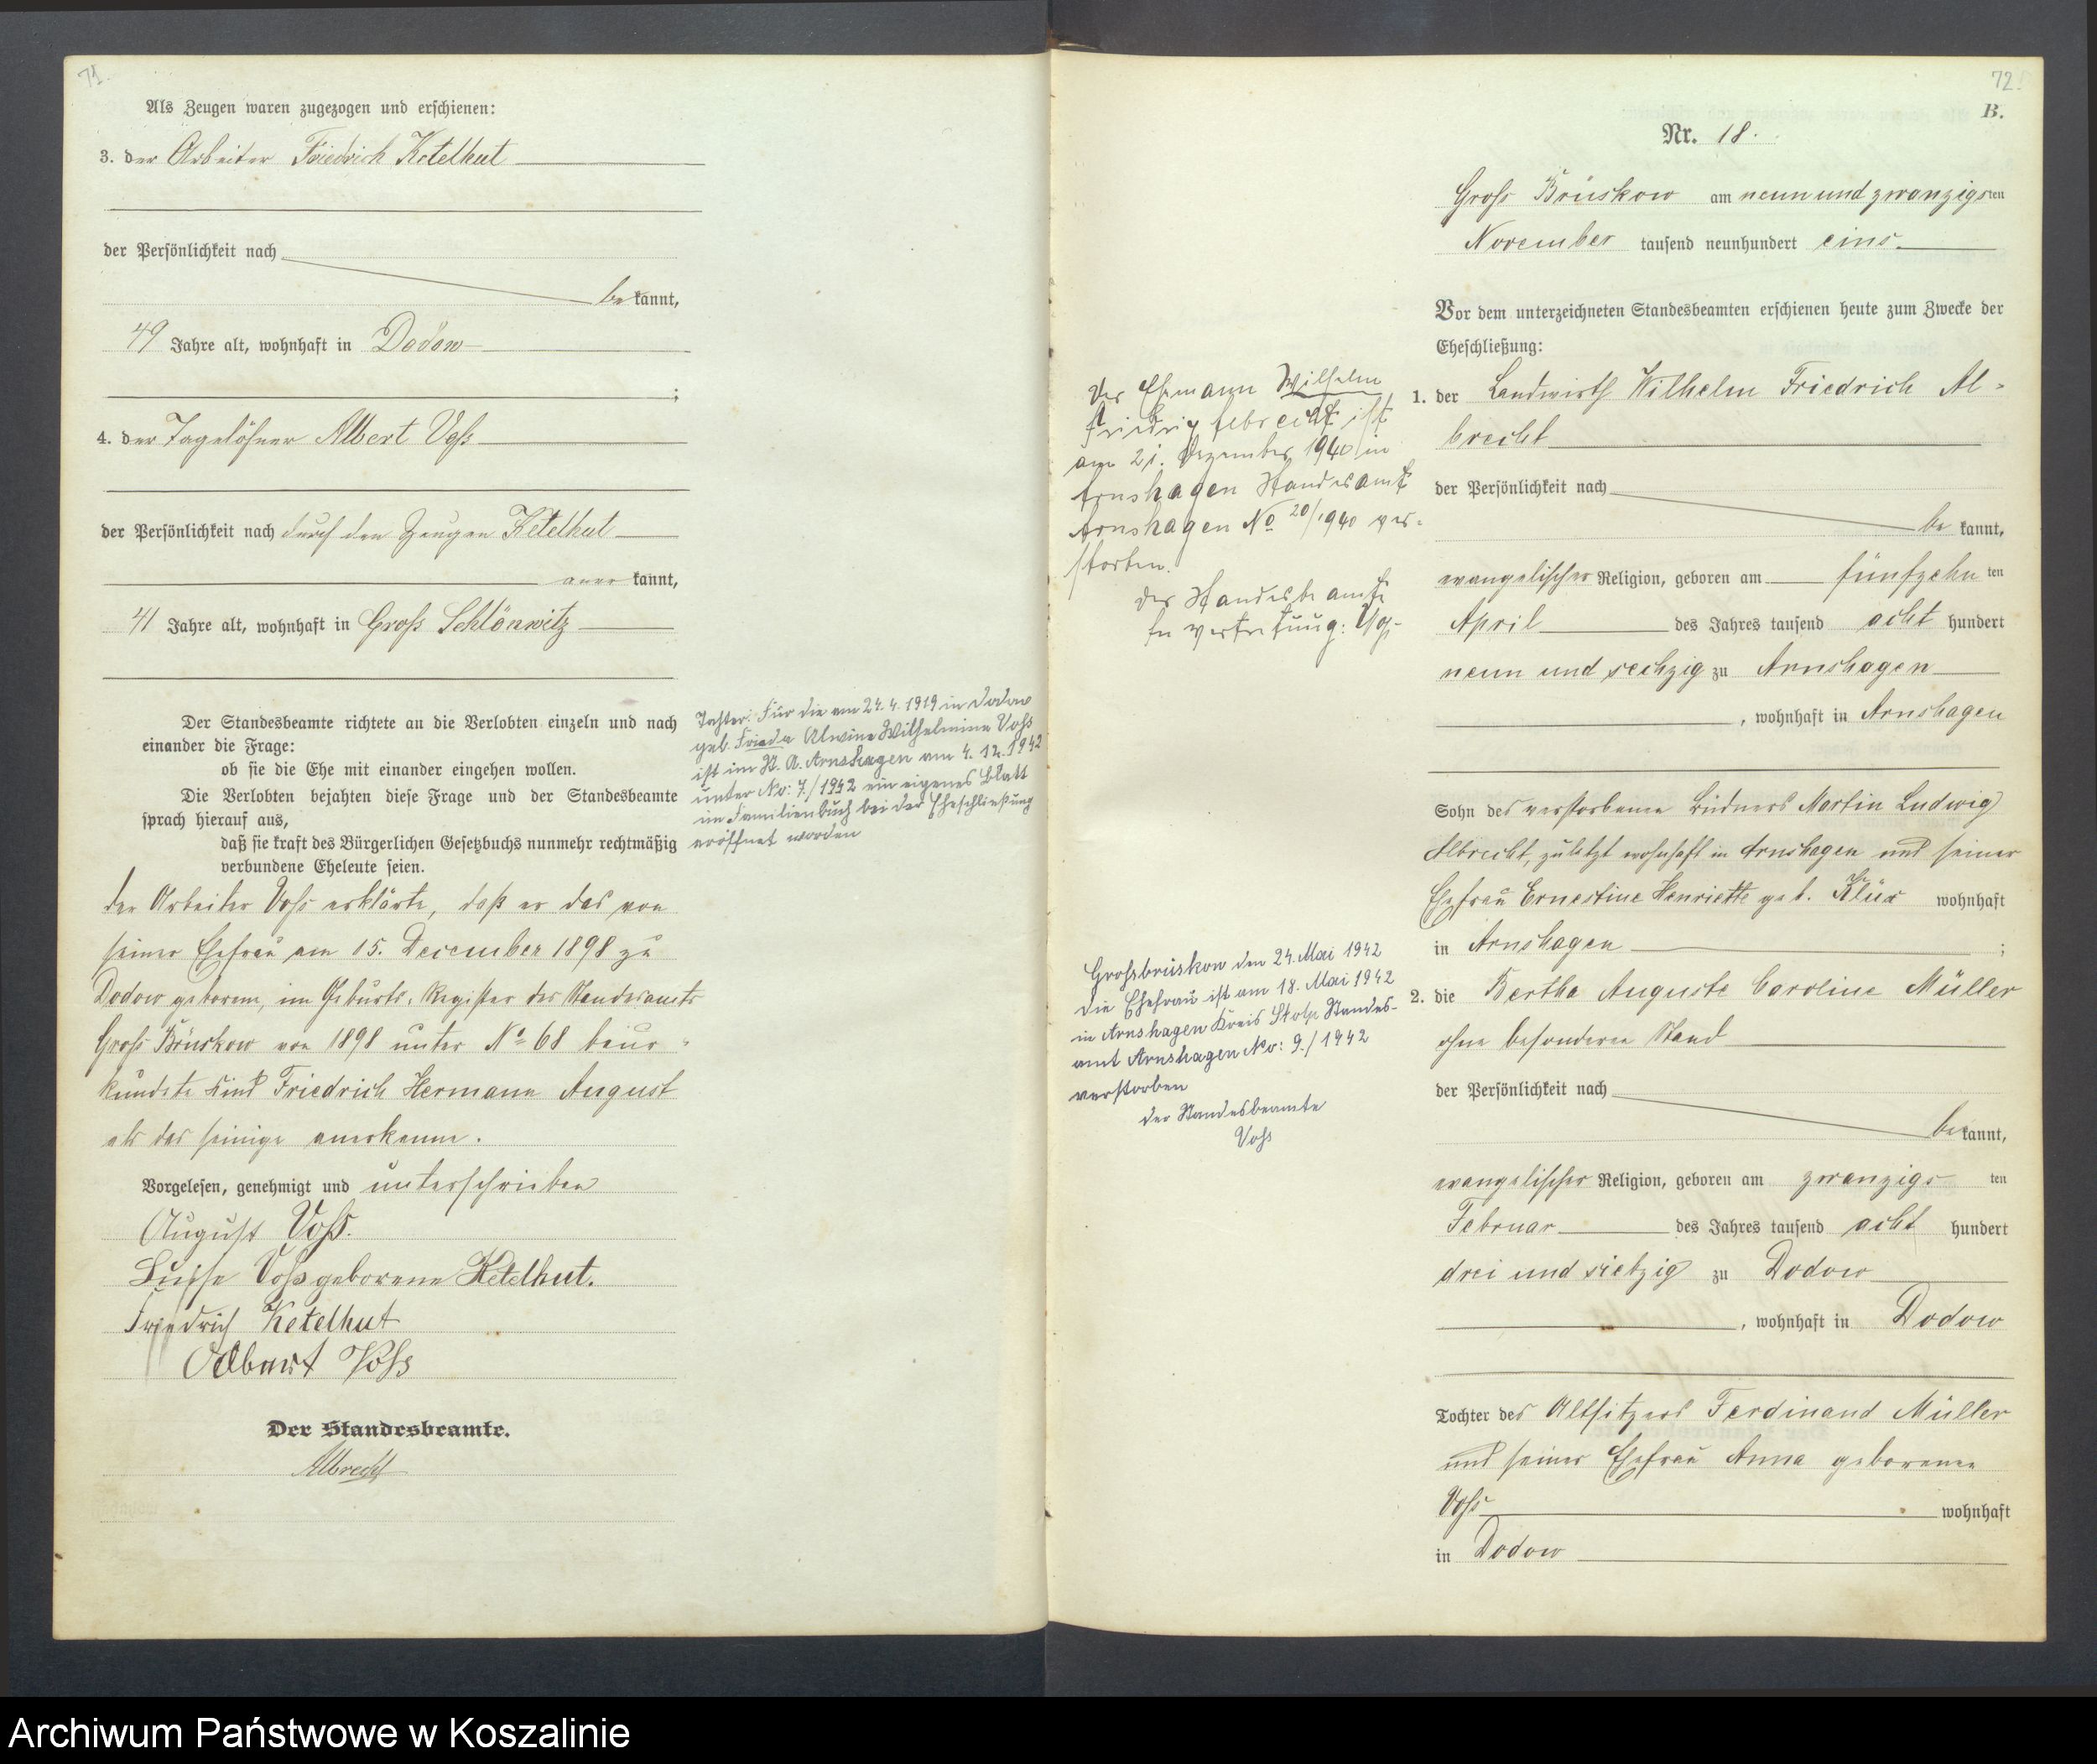 71.
Als Zeugen waren zugezogen und erschienen:
3. der Arbeiter Friedrich Ketelhut
der Persönlichkeit nach
bekannt,
49 Jahre alt, wohnhaft in Dodow
;
4. der Tagelöhner Albert Voß
der Persönlichkeit nach durch den Zeugen Ketelhut
anerkannt,
41 Jahre alt, wohnhaft in Groß Schlönwitz
Der Standesbeamte richtete an die Verlobten einzeln und nach
einander die Frage:
ob sie die Ehe mit einander eingehen wollen.
Die Verlobten bejahten diese Frage und der Standesbeamte
sprach hierauf aus,
daß sie kraft des Bürgerlichen Gesetzbuchs nunmehr rechtmäßig
verbundene Eheleute seien.
Der Arbeiter Voß erklärte, daß er das von
seiner Ehefrau am 15. December 1898 zu
Dodow geborene, im Geburts-Register des Standesamts
Groß Brüskow von 1898 unter No 68 beur-
kundete Kind Friedrich Hermann August
als das seinige anerkenne.
Vorgelesen, genehmigt und unterschrieben
August Voß.
Luise Voß geborene Ketelhut.
Friedrich Ketelhut
Albert Voß
Der Standesbeamte.
Albrecht
Tochter: Für die am 24.4.1919 in Dodow
geb. Frieda Alwine Wilhelmine Voß
ist im St. A. Arnshagen am 4.12.1942
unter No: 7./1942 ein eigenes Blatt
im Familienbuch bei der Eheschließung
eröffnet worden
72.
B.
Nr. 18.
Groß Brüskow am neunundzwanzigsten
November tausend neunhundert eins.
Vor dem unterzeichneten Standesbeamten erschienen heute zum Zwecke der
Eheschließung:
1. der Landwirth Wilhelm Friedrich Al-
brecht
der Persönlichkeit nach
bekannt,
evangelischer Religion, geboren am fünfzehnten
April des Jahres tausend acht hundert
neun und sechzig zu Arnshagen
, wohnhaft in Arnshagen
Sohn des verstorbenen Büdners Martin Ludwig
Albrecht, zuletzt wohnhaft in Arnshagen und seiner
Ehefrau Ernestine Henriette geb. wohnhaft
in Arnshagen ;
2. die Bertha Auguste Caroline Müller
ohne besonderen Stand
der Persönlichkeit nach
bekannt,
evangelischer Religion, geboren am zwanzigsten
Februar des Jahres tausend acht hundert
drei und siebzig zu Dodow
, wohnhaft in Dodow
Tochter des Altsitzers Ferdinand Müller
und seiner Ehefrau Anna geborenen
Voß wohnhaft
in Dodow
Der Ehemann Wilhelm
Friedrich Albrecht ist
am 21. Dezember 1940 in
Arnshagen Standesamt
Arnshagen No 20/1940 ver-
storben.
Der Standesbeamte
In Vertretung: Voß
Großbrüskow den 24. Mai 1942
Die Ehefrau ist am 18. Mai 1942
in Arnshagen Kreis Stolp Standes-
amt Arnshagen No: 9./1942
verstorben
Der Standesbeamte
Voß
Archiwum Państwowe w Koszalinie